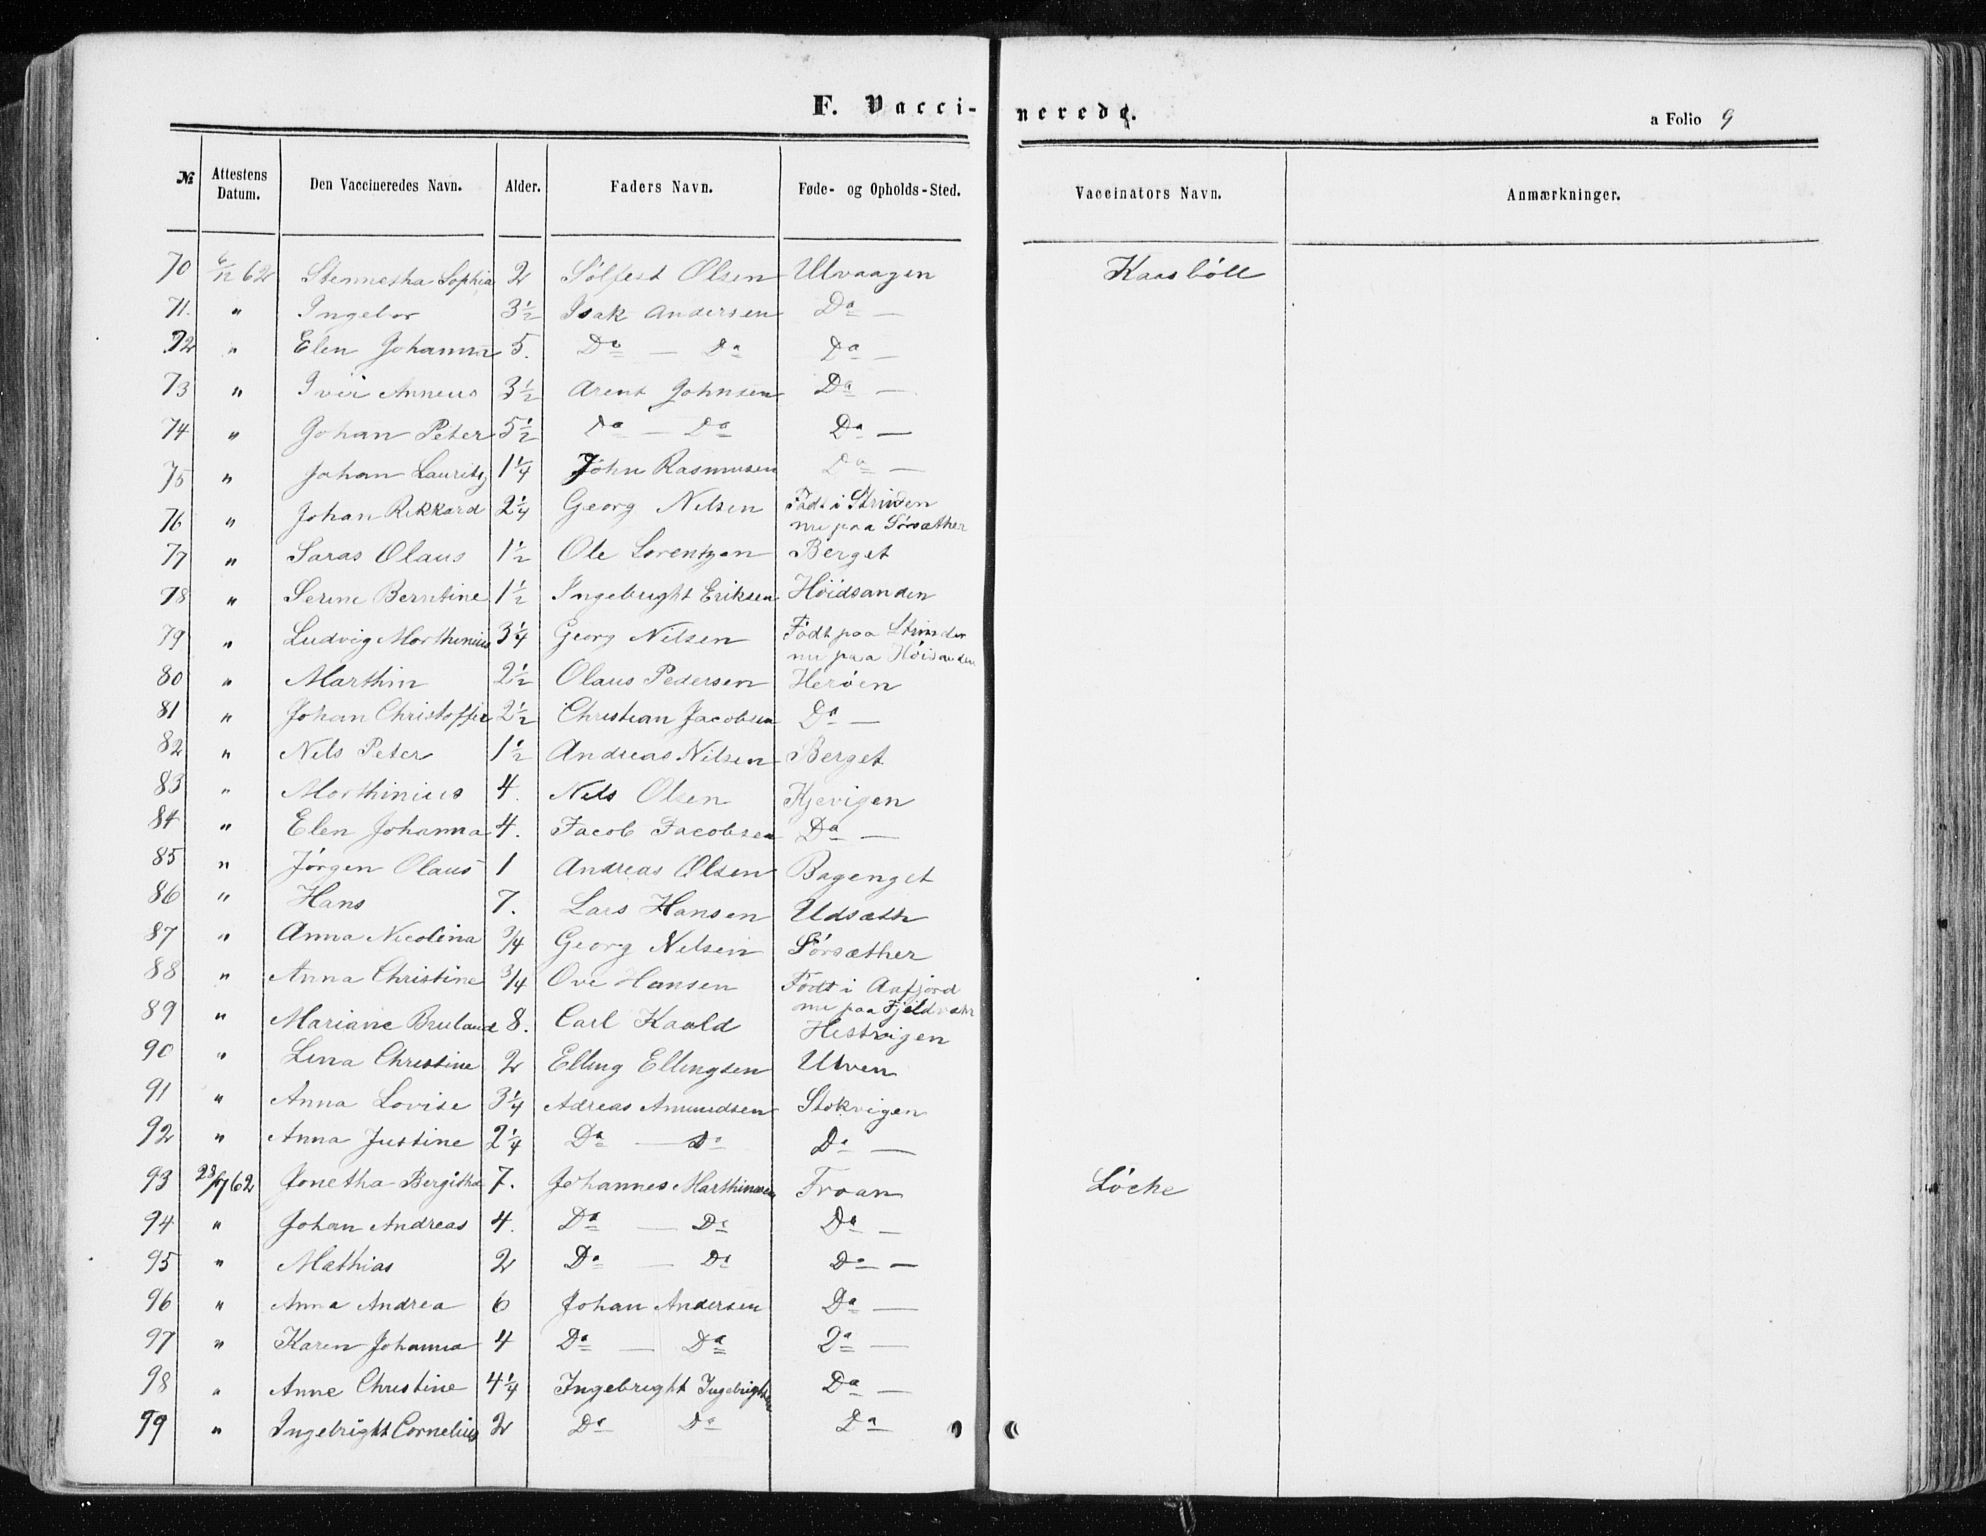 F. Vacci- nerede.
a Folio 9
№ Attestens Datum. Den Vaccineredes Navn. Alder. Faders Navn. Føde- og Opholds-Sted. Vaccinators Navn. Anmærkninger.
70 6/12 62 Stennetha Sophia 2 Sølfest Olsen Ulvaagen Kaasbøll
71. " Ingebor 3 1/2 Isak Andersen Da —
72 " Elen Johanna 5. Da — Da Da —
73 " Iver Anneus 3 1/2 Arent Johnsen Da —
74 " Johan Peter 5 1/2 Da — Da Da —
75 " Johan Lauritz 1 1/4 John Rasmusen Da —
76 " Johan Rikkard 2 1/4 Georg Nilsen Født i Strinden
nu paa Sørsæther
77 " Saras Olaus 1 1/2 Ole Lorentzen Berget
78 " Serine Berntine 1 1/2 Ingebright Eriksen Høidsanden
79 " Ludvig Morthinius 3 1/4 Georg Nilsen Født paa Strinden
nu paa Høisanden
80 " Marthin 2 1/2 Olaus Pedersen Herøen
81 " Johan Christoffer 2 1/2 Christian Jacobsen Da —
82 " Nils Peter 1 1/2 Andreas Nilsen Berget
83 " Morthinius 4. Nils Olsen Kjevigen
84 " Elen Johanna 4. Jacob Jacobsen Da —
85 " Jørgen Olaus 1 Andreas Olsen Bagenget
86 " Hans 7. Lars Hansen Udsæth
87 " Anna Nicolina 3/4 Georg Nilsen Sørsæther
88 " Anna Christine 3/4 Ove Hansen Født i Aafjord
nu paa Fjeldvær
89 " Mariane Bruland 8. Carl Kaald Hestvigen
90 " Lina Christine 2 Elling Ellingsen Ulven
91 " Anna Lovise 3 1/4 Adreas Amundsen Stokvigen
92 " Anna Justine 2 1/4 Da — Da Da —
93 28/7 62 Jonetha Bergitha 7. Johannes Marthinsen Froan Løcke
94 " Johan Andreas 4. Da — Da Da —
95 " Mathias 2 Da — Da Da —
96 " Anna Andrea 6 Johan Andersen Da —
97 " Karen Johanna 4 Da — Da Da —
98 " Anne Christine 4 1/4 Ingebright Ingebrigtsen Da —
99 " Ingebright Cornelius 2 Da Da Da